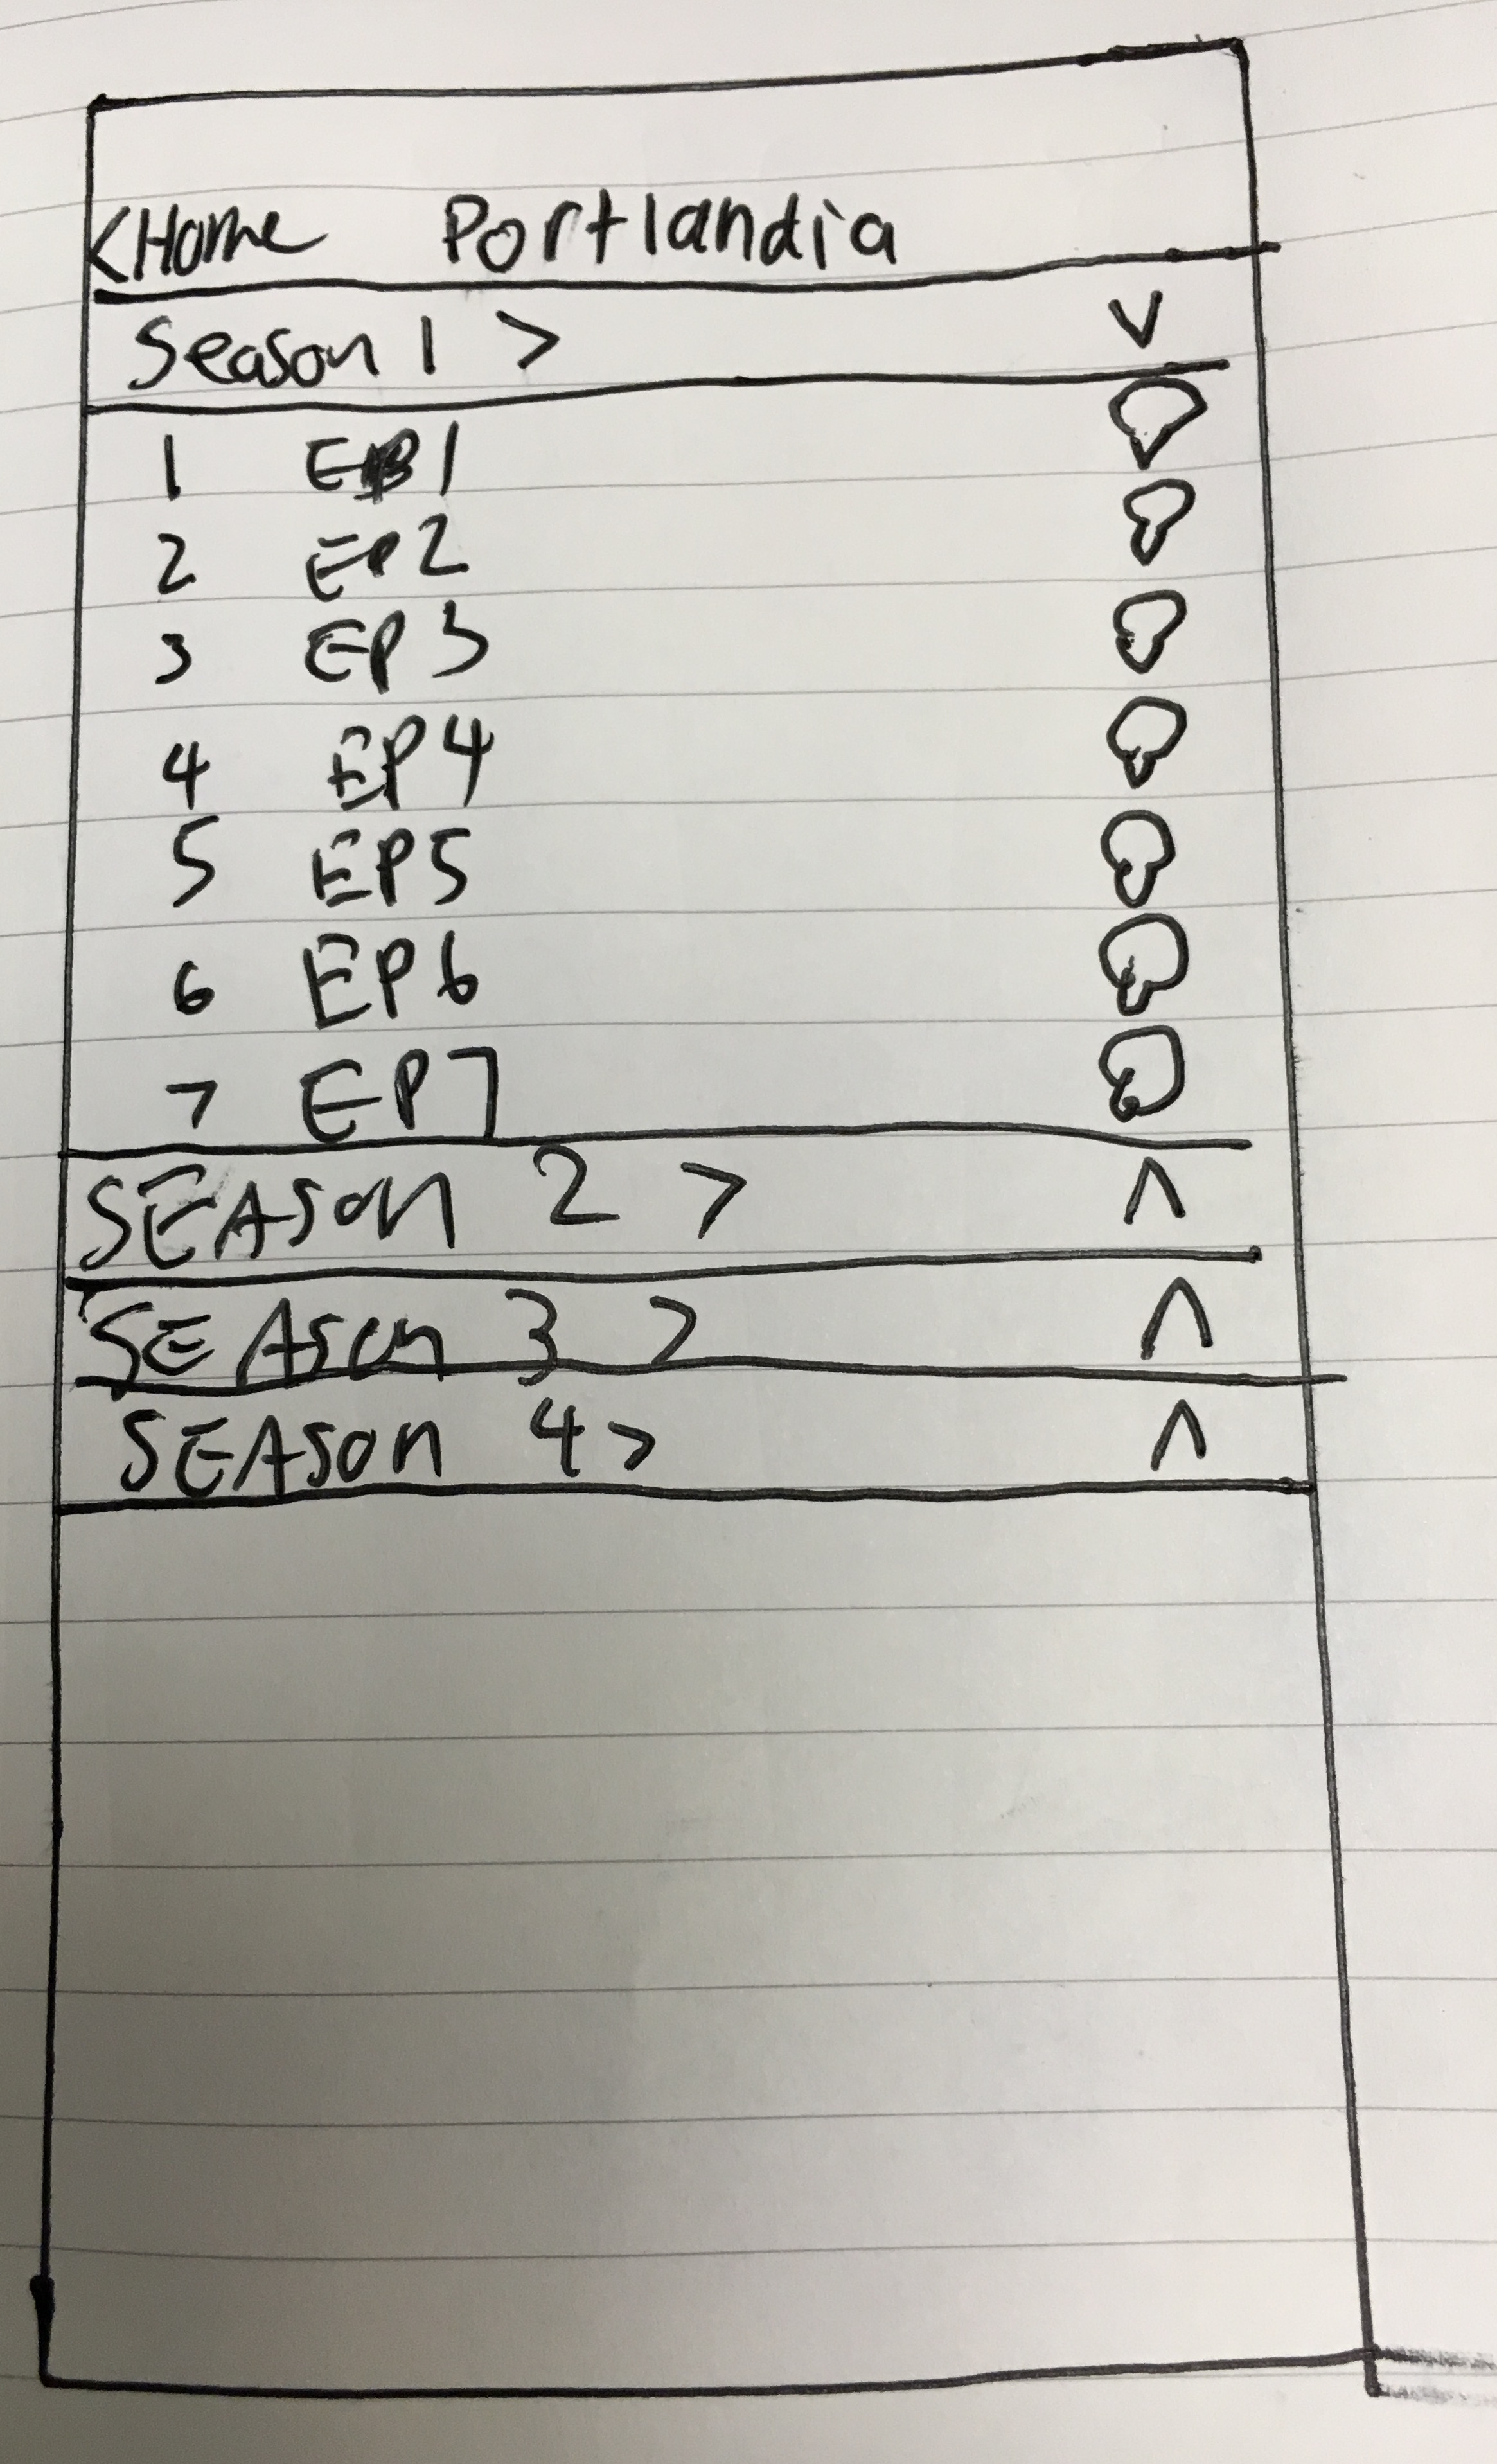 <Home Portlandia
Season 1 > V
1 EP1
2 EP2
3 EP3
4 EP4
5 EP5
6 EP6
7 EP7
SEASon 2 > Λ
SEASon 3 > Λ
SEASon 4 > Λ